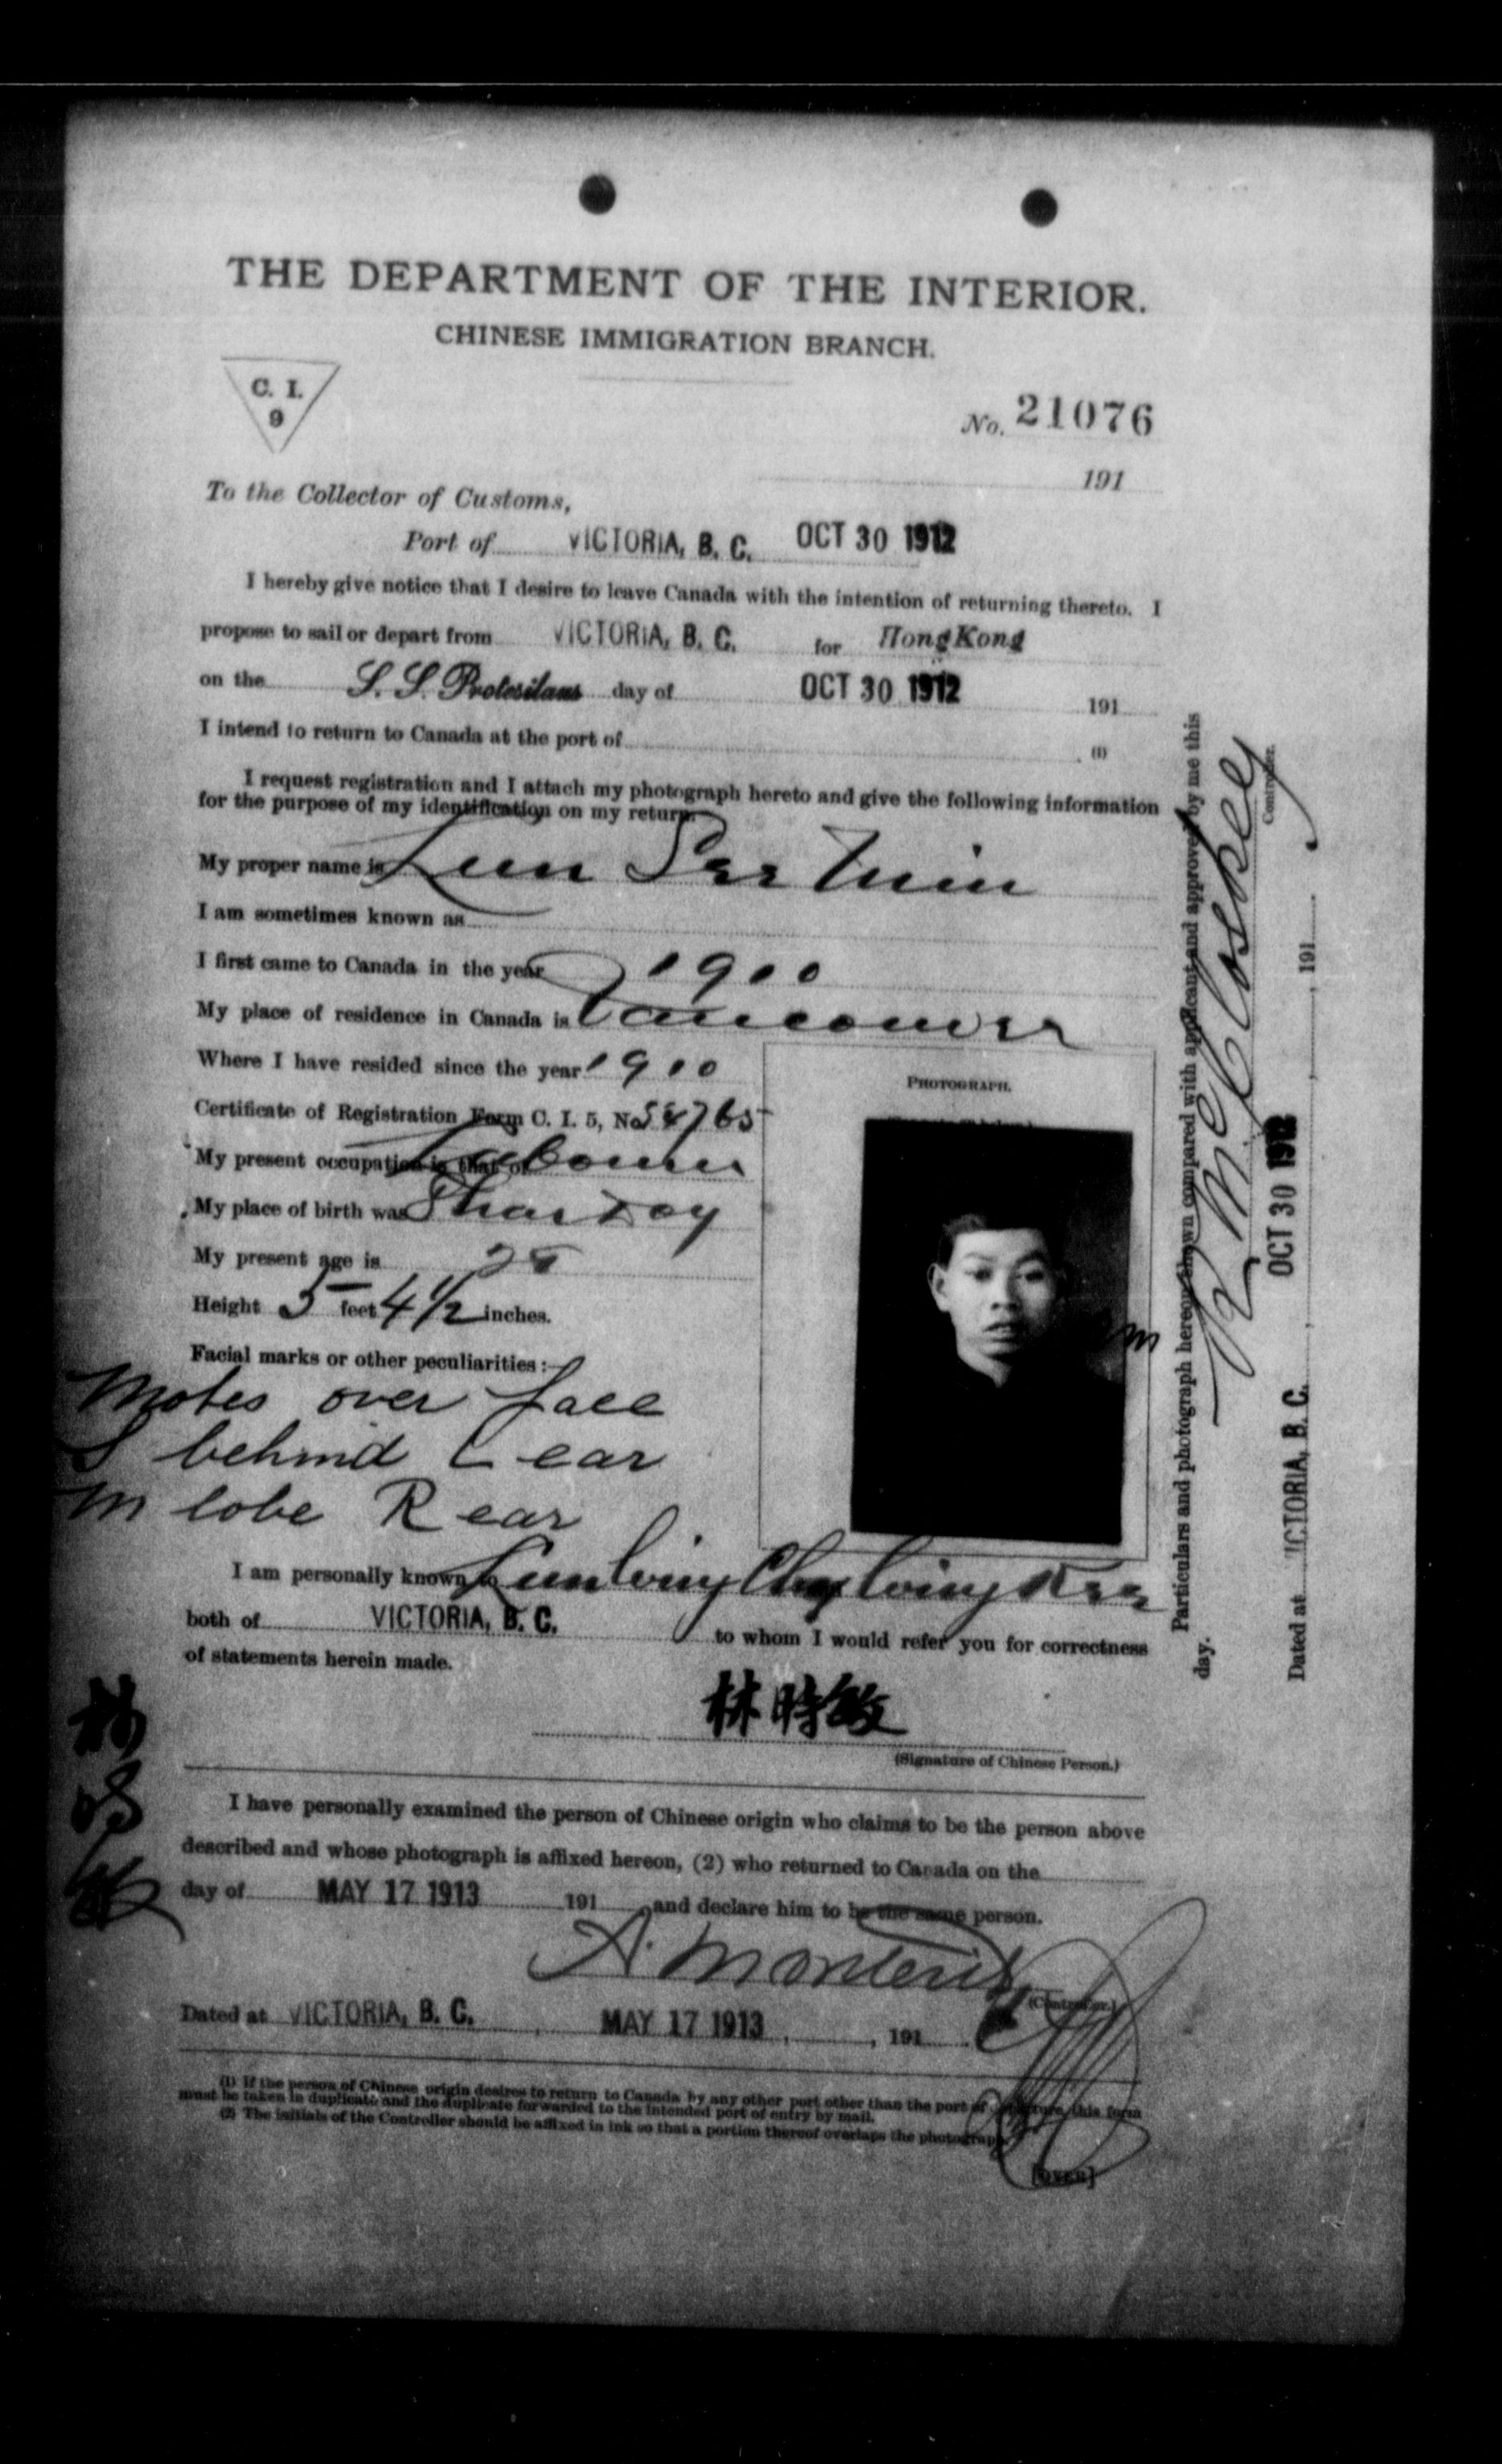 THE DEPARTMENT OF THE INTERIOR.
CHINESE IMMIGRATION BRANCH.
C. I.
9
No. 21076
191
To the Collector of Customs,
Port of VICTORIA, B. C. OCT 30 1912
I hereby give notice that I desire to leave Canada with the intention of returning thereto. I
propose to sail or depart from VICTORIA, B. C. for Hong Kong
on the S. S. Protesilaus day of OCT 30 1912 191
I intend to return to Canada at the port of (1)
I request registration and I attach my photograph hereto and give the following information
for the purpose of my identification on my return.
My proper name is Lum See Min
I am sometimes known as
I first came to Canada in the year 1910
My place of residence in Canada is Vancouver
Where I have resided since the year 1910
PHOTOGRAPH.
Certificate of Registration Form C. I. 5, No. 58765
My present occupation is that of Labourer
My place of birth was
My present age is
Height 5 feet 4 1/2 inches.
Facial marks or other peculiarities:—
Moles over face
S behind L ear
M lobe R ear
I am personally known to
both of VICTORIA, B. C. to whom I would refer you for correctness
of statements herein made.
林時敏
(Signature of Chinese Person.)
I have personally examined the person of Chinese origin who claims to be the person above
described and whose photograph is affixed hereon, (2) who returned to Canada on the
day of MAY 17 1913 191 and declare him to be the same person.
A. Monteith
(Controller.)
Dated at VICTORIA, B. C. , MAY 17 1913 , , 191
(1) If the person of Chinese origin desires to return to Canada by any other port other than the port of departure, this form
must be taken in duplicate and the duplicate forwarded to the intended port of entry by mail.
(2) The initials of the Controller should be affixed in ink so that a portion thereof overlaps the photograph.
[OVER]
林時敏
Particulars and photograph hereon shown compared with applicant and approved by me this
day.
R McCloskey
Controller.
Dated at VICTORIA, B. C. , OCT 30 1912 , 191